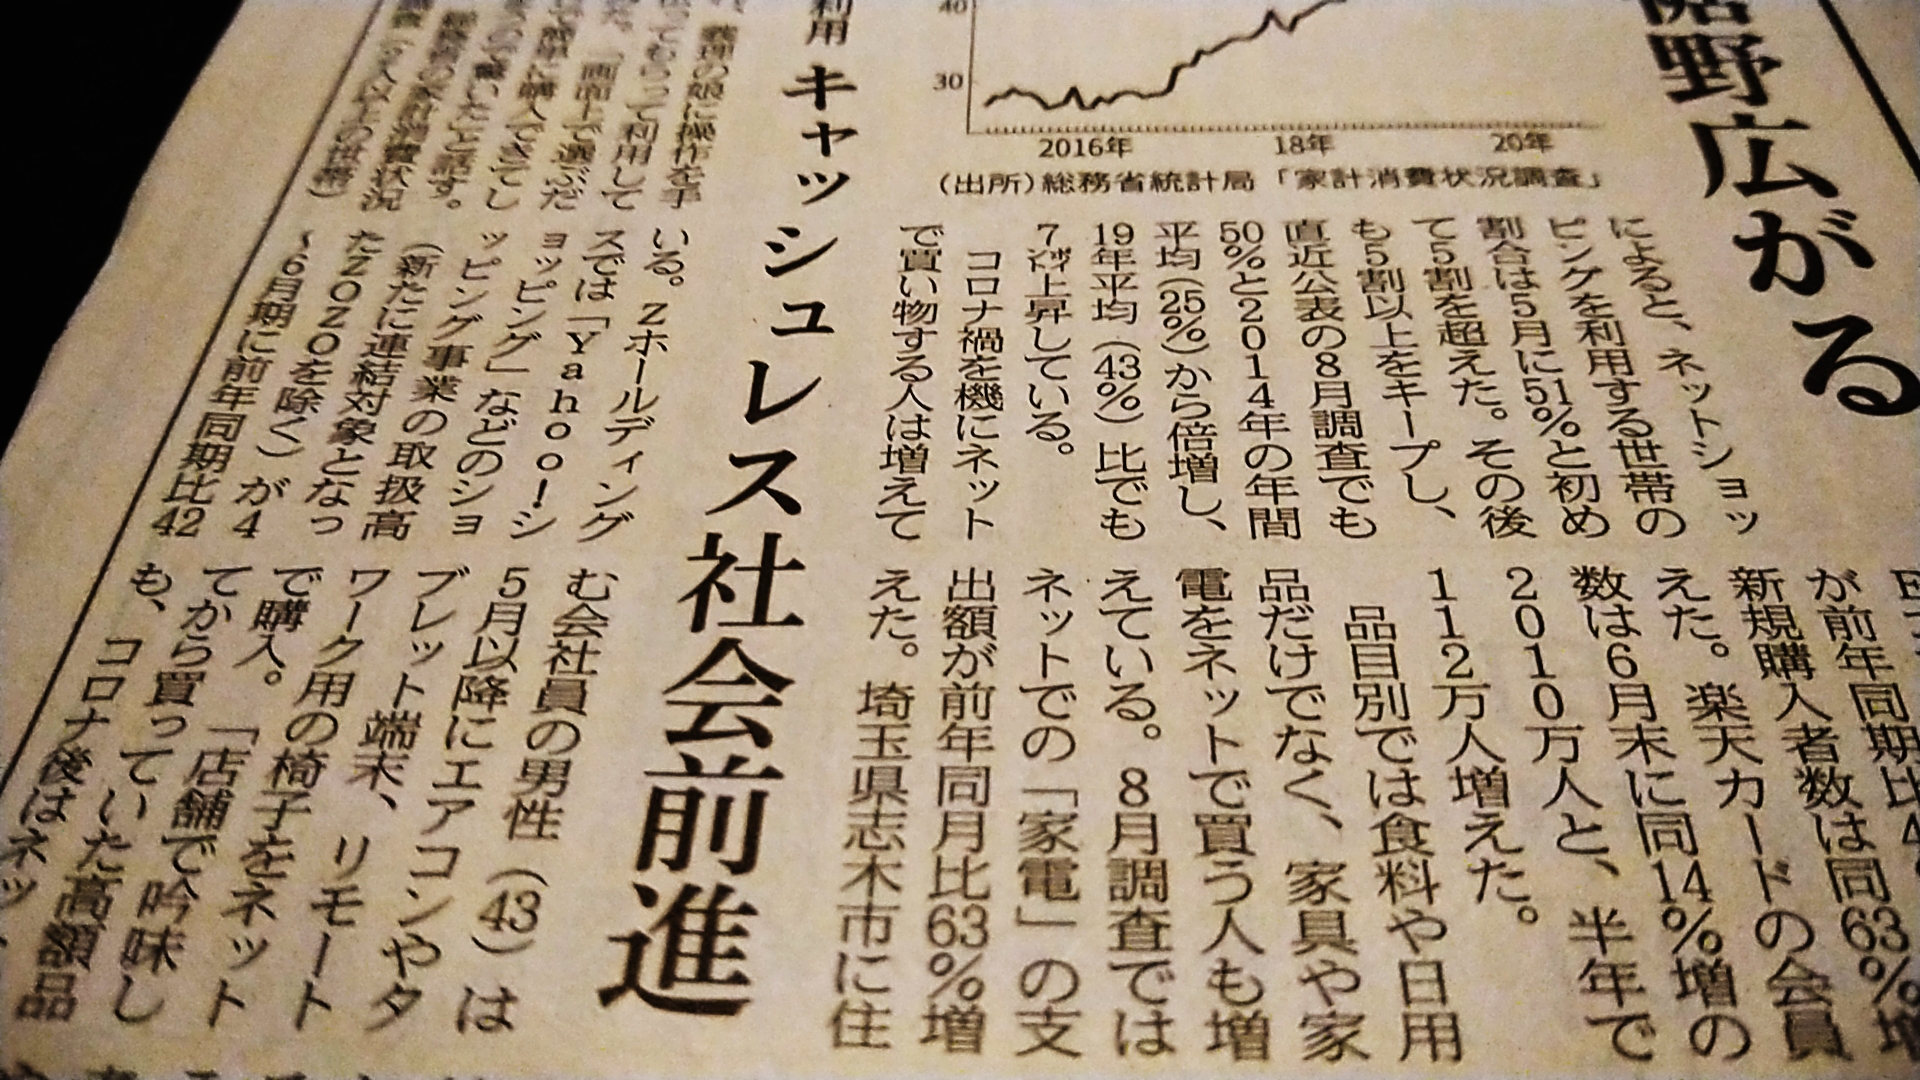 裾野広がる
40
30
2016年
18年
20年
(出所)総務省統計局「家計消費状況調査」
によると、ネットショッ
ピングを利用する世帯の
割合は5月に51%と初め
て5割を超えた。その後
も5割以上をキープし、
直近公表の8月調査でも
50%と2014年の年間
平均(25%)から倍増し、
19年平均(43%)比でも
7㌽上昇している。
コロナ禍を機にネット
で買い物する人は増えて
利用 キャッシュレス社会前進
義理の娘に操作を手
って利用して
「画面上で選ぶだ
購入できてし
いたと話す。
いる。Zホールディング
スでは「Yahoo!シ
ョッピング」などのショ
ッピング事業の取扱高
(新たに連結対象となっ
たZOZOを除く)が4
~6月期に前年同期比42
が前年同期比4
63%増
新規購入者数は同
えた。楽天カードの会員
数は6月末に同14%増の
2010万人と、半年で
112万人増えた。
品目別では食料や日用
品だけでなく、家具や家
電をネットで買う人も増
えている。8月調査では
ネットでの「家電」の支
出額が前年同月比63%増
えた。埼玉県志木市に住
む会社員の男性(43)は
5月以降にエアコンやタ
ブレット端末、リモート
ワーク用の椅子をネット
で購入。「店舗で吟味し
てから買っていた高額品
も、コロナ後はネッ